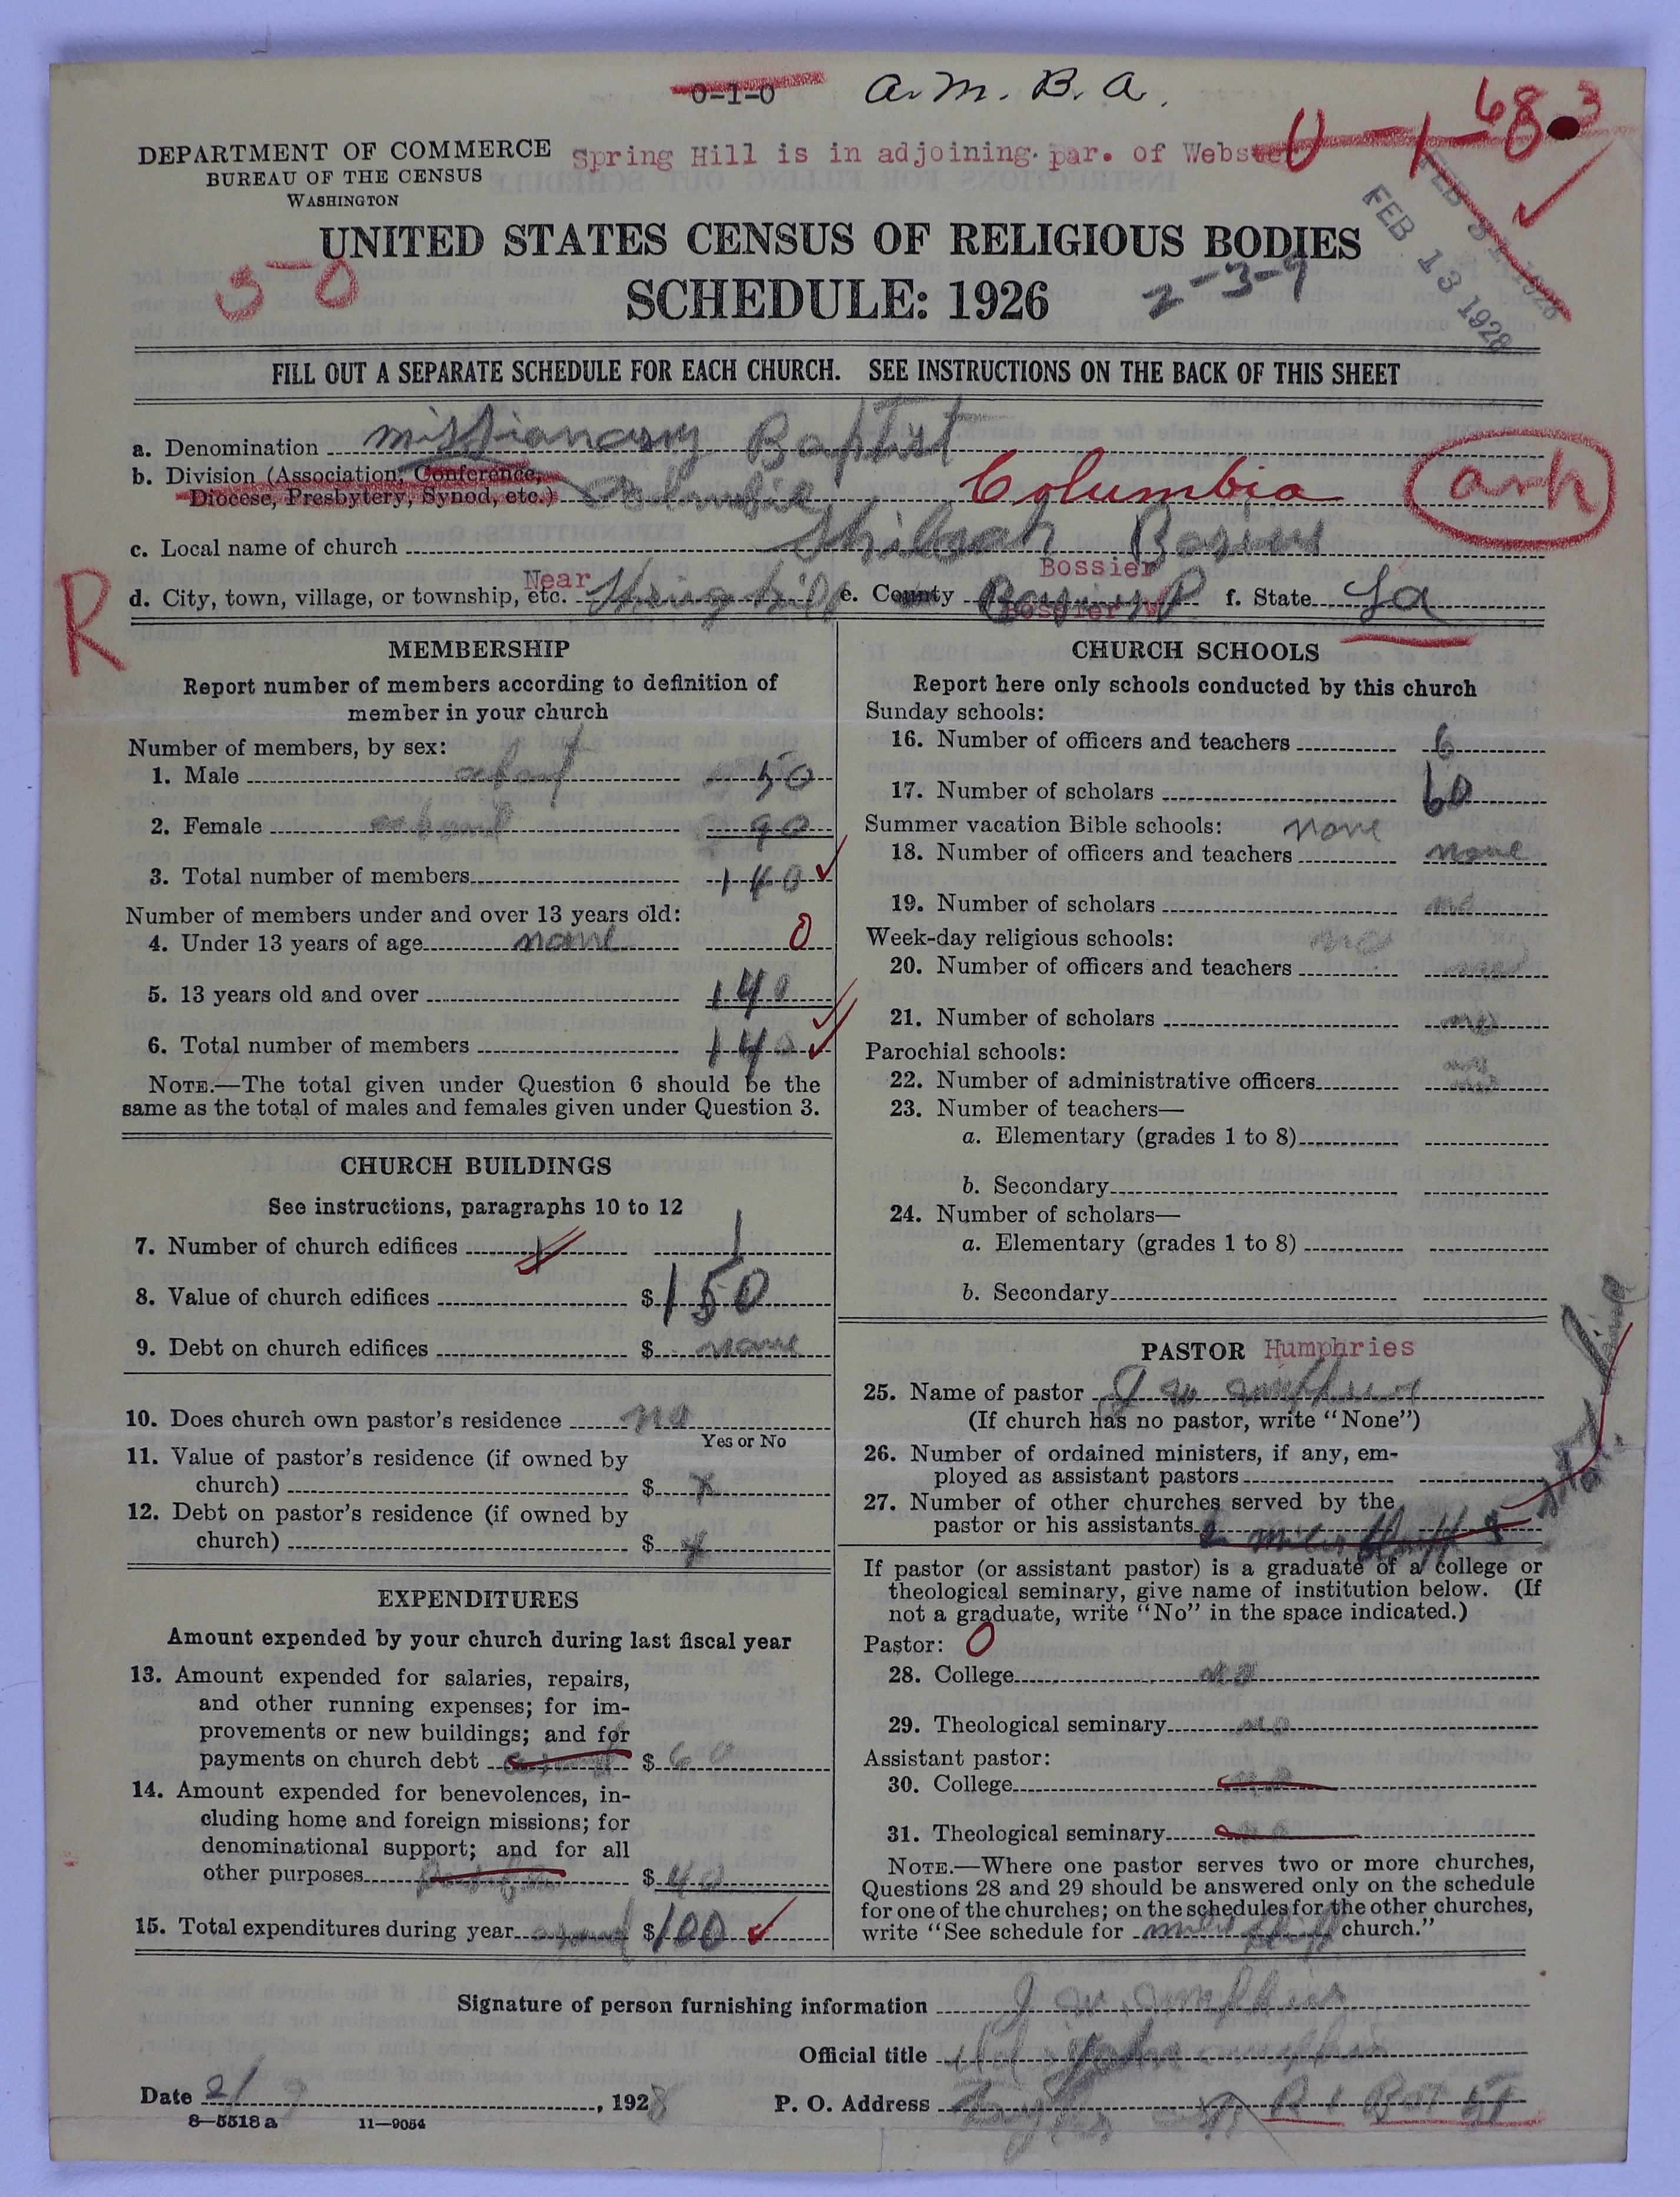 0-1-0 A. M. B. A.
0-1-68.3
DEPARTMENT OF COMMERCE
BUREAU OF THE CENSUS
WASHINGTON
Spring Hill is in adjoining. par. of Webster
FEB 13 1928
UNITED STATES CENSUS OF RELIGIOUS BODIES
50
SCHEDULE: 1926
2-3-9
FILL OUT A SEPARATE SCHEDULE FOR EACH CHURCH. SEE INSTRUCTIONS ON THE BACK OF THIS SHEET
a. Denomination Missionary Baptist
b. Division (Association, Conference,
Diocese, Presbytery, Synod, etc.) Columbia Ark
c. Local name of church
R
d. City, town, village, or township, etc. Near Spring hill e. County Bossier f. State La
MEMBERSHIP
Report number of members according to definition of
member in your church
Number of members, by sex:
1. Male about 50
2. Female about 90
3. Total number of members 140
Number of members under and over 13 years old:
4. Under 13 years of age none 0
5. 13 years old and over 140
6. Total number of members 140
NOTE.—The total given under Question 6 should be the
same as the total of males and females given under Question 3.
CHURCH BUILDINGS
See instructions, paragraphs 10 to 12
7. Number of church edifices 1 1
8. Value of church edifices $150
9. Debt on church edifices $ none
10. Does church own pastor's residence no
Yes or No
11. Value of pastor's residence (if owned by
church) $ x
12. Debt on pastor's residence (if owned by
church) $ x
EXPENDITURES
Amount expended by your church during last fiscal year
13. Amount expended for salaries, repairs,
and other running expenses; for im-
provements or new buildings; and for
payments on church debt $ 60
14. Amount expended for benevolences, in-
cluding home and foreign missions; for
denominational support; and for all
other purposes $ 40
15. Total expenditures during year $100
CHURCH SCHOOLS
Report here only schools conducted by this church
Sunday schools:
16. Number of officers and teachers 6
17. Number of scholars 60
Summer vacation Bible schools: none
18. Number of officers and teachers none
19. Number of scholars no
Week-day religious schools: no
20. Number of officers and teachers
21. Number of scholars no
Parochial schools:
22. Number of administrative officers
23. Number of teachers—
a. Elementary (grades 1 to 8)
b. Secondary
24. Number of scholars—
a. Elementary (grades 1 to 8)
b. Secondary
PASTOR Humphries
25. Name of pastor J W
(If church has no pastor, write "None")
26. Number of ordained ministers, if any, em-
ployed as assistant pastors
27. Number of other churches served by the
pastor or his assistants
If pastor (or assistant pastor) is a graduate of a college or
theological seminary, give name of institution below. (If
not a graduate, write "No" in the space indicated.)
Pastor: 0
28. College no
29. Theological seminary no
Assistant pastor:
30. College no
31. Theological seminary no
NOTE.—Where one pastor serves two or more churches,
Questions 28 and 29 should be answered only on the schedule
for one of the churches; on the schedules for the other churches,
write "See schedule for church."
Signature of person furnishing information J W
Official title
Date 2/9, 1928 P. O. Address R 1 Box 51
8—5518 a 11—9054